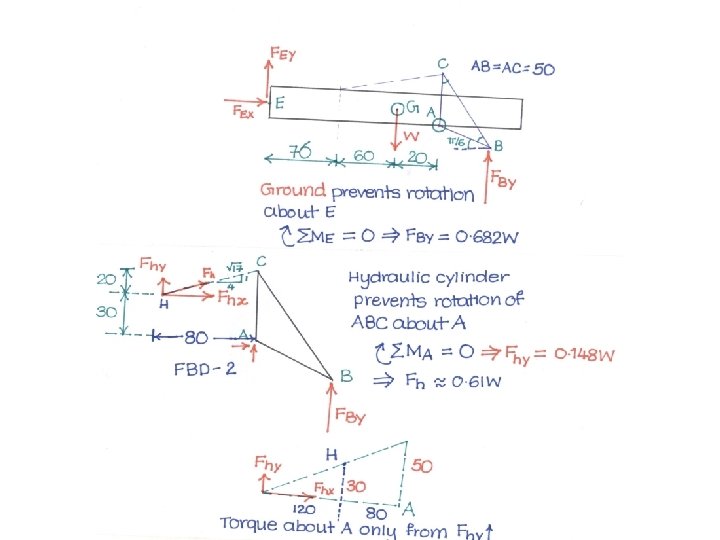 FEY
C
AB=AC=50
E
FEX
G
A
W
π/6
B
76
60
20
FBY
Ground prevents rotation
about E
ΣME = 0 ⇒ FBY = 0.682W
Fhy
Fh
√17
C
4
1
20
H
Fhx
30
80
A
FBD-2
B
FBY
Hydraulic cylinder
prevents rotation of
ABC about A
ΣMA = 0 ⇒ Fhy = 0.148W
⇒ Fh ≈ 0.61W
H
Fhy
50
Fhx
30
120
80
A
Torque about A only from Fhy↑